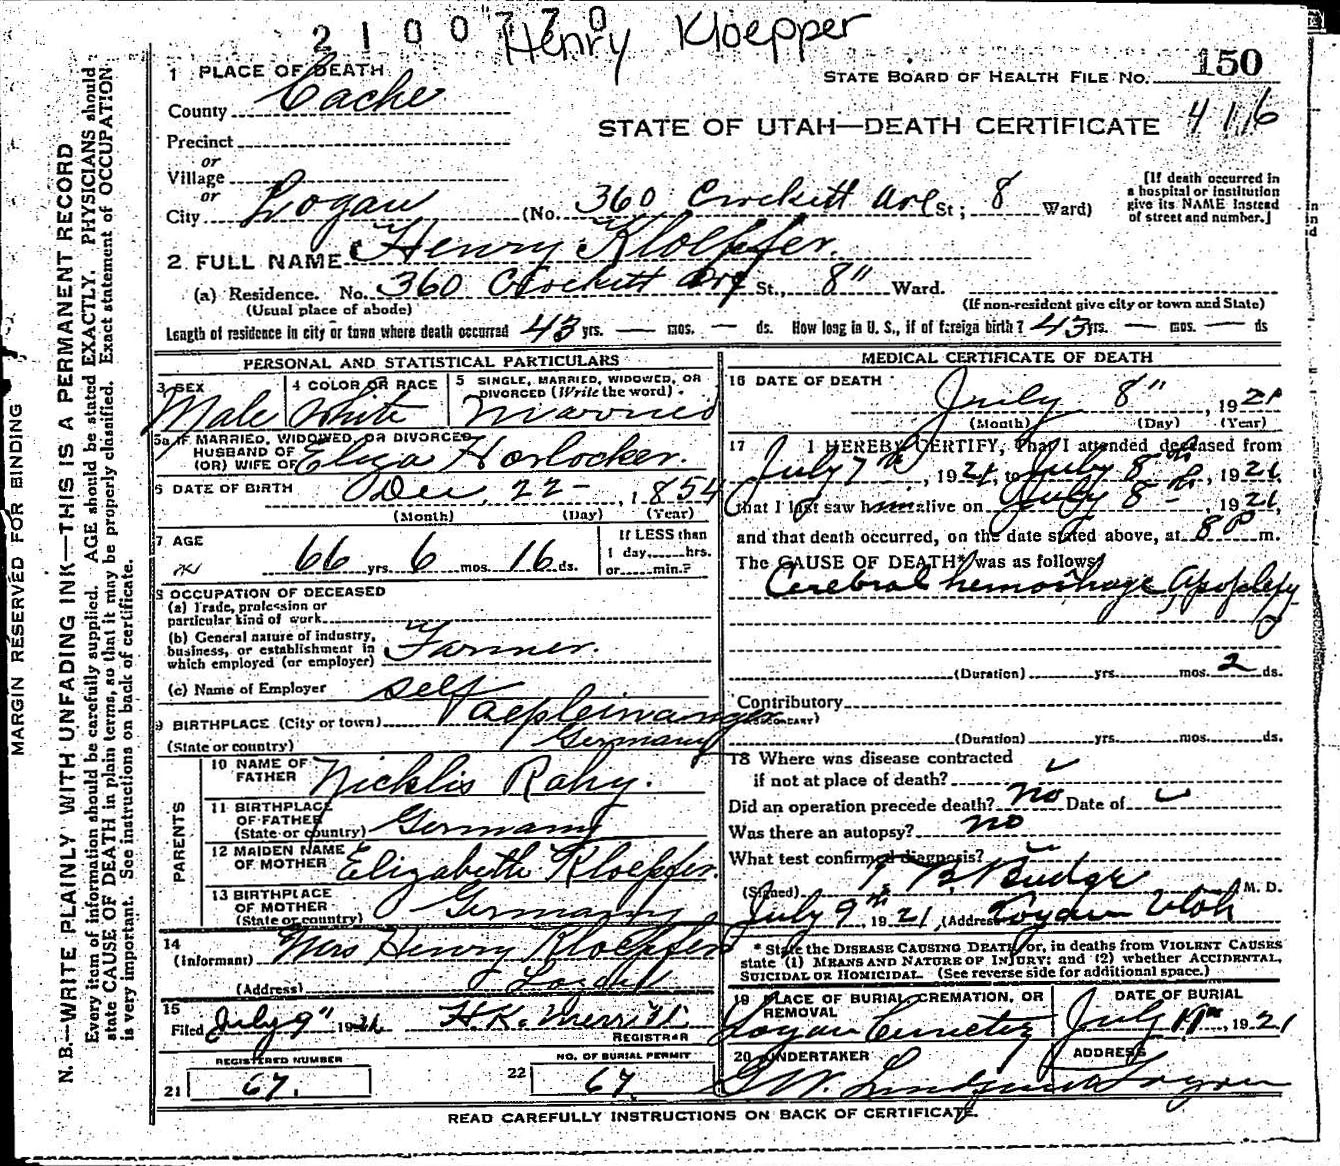 2100770
Henry Kloepper
1 PLACE OF DEATH
STATE BOARD OF HEALTH FILE NO. 150
County Cache
STATE OF UTAH—DEATH CERTIFICATE 416
Precinct
or
Village
or
City Logan (No. 360 Crockett Ave St; 8 Ward)
[If death occurred in
a hospital or institution
give its NAME instead
of street and number.]
2 FULL NAME Henry Kloepfer.
(a) Residence. No. 360 Crockett Ave St., 8" Ward.
(Usual place of abode) (If non-resident give city or town and State)
Length of residence in city or town where death occurred 43 yrs. — mos. — ds. How long in U. S., if of foreign birth? 43 yrs. — mos. — ds
PERSONAL AND STATISTICAL PARTICULARS
3 SEX Male
4 COLOR OR RACE White
5 SINGLE, MARRIED, WIDOWED, OR
DIVORCED (Write the word)
Married
5a IF MARRIED, WIDOWED, OR DIVORCED
HUSBAND OF
(OR) WIFE OF Eliza Horlocker.
6 DATE OF BIRTH Dec, 22 - , 1854
(Month) (Day) (Year)
7 AGE
66 yrs 6 mos. 16 ds.
If LESS than
1 day, hrs.
or min.?
8 OCCUPATION OF DECEASED
(a) Trade, profession or
particular kind of work
(b) General nature of industry,
business, or establishment in
which employed (or employer) Farmer.
(c) Name of Employer self
9 BIRTHPLACE (City or town)
(State or country) Germany
PARENTS
10 NAME OF
FATHER Nicklis Rahy.
11 BIRTHPLACE
OF FATHER
(State or country) Germany
12 MAIDEN NAME
OF MOTHER Elizabeth Kloepfer.
13 BIRTHPLACE
OF MOTHER
(State or country) Germany
14
(Informant) Mrs Henry Kloepfer
(Address) Logan
15
Filed July 9" 1921 H.K. Merrill
REGISTRAR
REGISTERED NUMBER
21 67.
NO. OF BURIAL PERMIT
22 67
MEDICAL CERTIFICATE OF DEATH
16 DATE OF DEATH
July 8" , 1921
(Month) (Day) (Year)
17 I HEREBY CERTIFY, That I attended deceased from
July 7th, 1921, to July 8th, 1921
that I last saw him alive on July 8th, 1921,
and that death occurred, on the date stated above, at 8 P m.
The CAUSE OF DEATH* was as follows
Cerebral hemorrhage Apoplexy
(Duration) yrs. mos. 2 ds.
Contributory
(SECONDARY)
(Duration) yrs. mos. ds.
18 Where was disease contracted
if not at place of death?
Did an operation precede death? no Date of
Was there an autopsy? no
What test confirmed diagnosis?
(Signed) T B Budge M. D.
July 9th, 1921, (Address) Logan Utah
* State the DISEASE CAUSING DEATH, or, in deaths from VIOLENT CAUSES
state (1) MEANS AND NATURE OF INJURY; and (2) whether ACCIDENTAL,
SUICIDAL OR HOMICIDAL. (See reverse side for additional space.)
19 PLACE OF BURIAL, CREMATION, OR
REMOVAL
Logan Cemetery
DATE OF BURIAL
July 11th, 1921
20 UNDERTAKER
G W. Lindquist
ADDRESS
Logan
READ CAREFULLY INSTRUCTIONS ON BACK OF CERTIFICATE.
MARGIN RESERVED FOR BINDING
N. B.—WRITE PLAINLY WITH UNFADING INK—THIS IS A PERMANENT RECORD
Every item of information should be carefully supplied. AGE should be stated EXACTLY. PHYSICIANS should
state CAUSE OF DEATH in plain terms, so that it may be properly classified. Exact statement of OCCUPATION
is very important. See instructions on back of certificate.